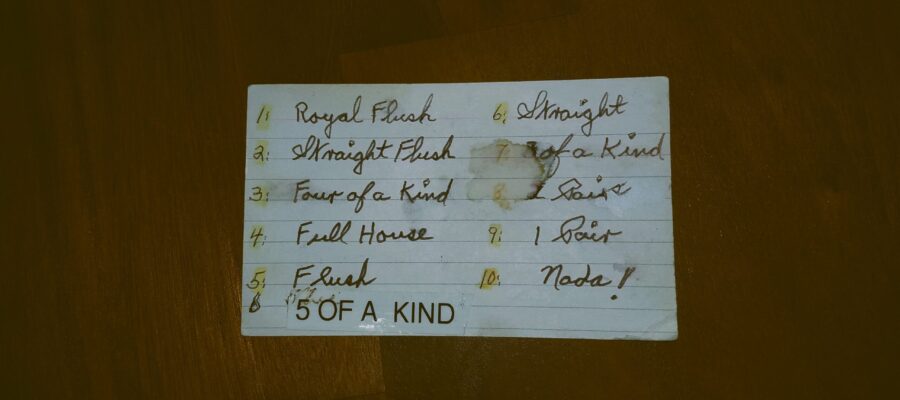 1: Royal Flush
2: Straight Flush
3: Four of a Kind
4: Full House
5: Flush
5 OF A KIND
6: Straight
7 of a Kind
8 Pairs
9: 1 Pair
10: Nada!